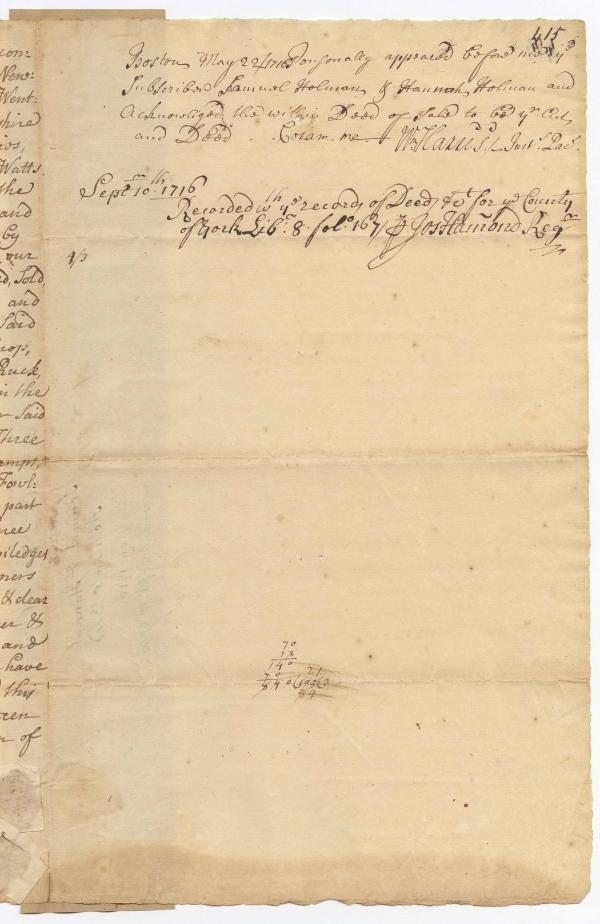 415
Boston May 22 1716 Personally appeared before me yͤ
Subscriber Samuel Holman & Hannah Holman and
Acknowledged the within Deed of Sale to be yʳ Act
and Deed. Coram me Wᵐ Harris Just. Pac.
Septᵐ 10ᵗʰ 1716
Recorded wᵗʰ yᵉ records of Deeds &c for yᵉ County
of York Libʳ 8. folº 167 ⅌ Jos Hamond Regʳ
1/3
con:
New:
Went:
shire
Watts.
the
and
by
our
Sold,
and
Said
Ruck,
in the
Said
Three
Fowl:
part
hree
viledges
ners
& clear
er &
and
have
this
teen
of
70
12
140
70
840
21
84